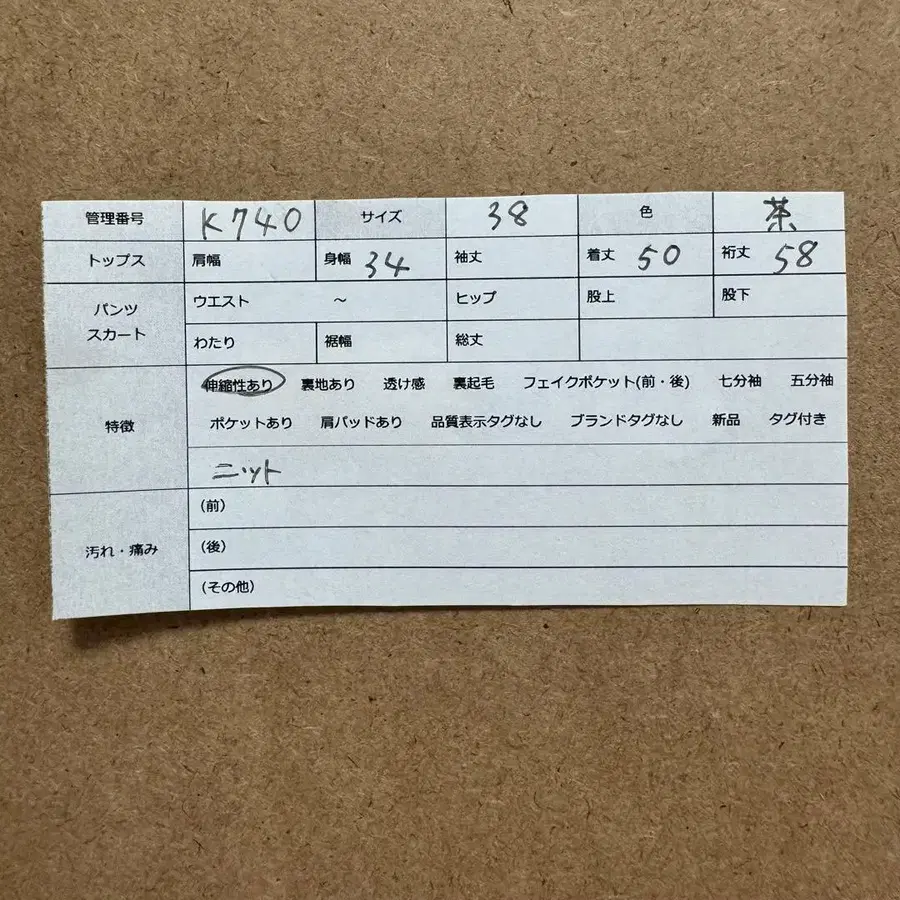 管理番号 K740 サイズ 38 色 茶
トップス 肩幅 身幅 34 袖丈 着丈 50 裄丈 58
パンツ スカート ウエスト ～ ヒップ 股上 股下
わたり 裾幅 総丈
特徴 伸縮性あり 裏地あり 透け感 裏起毛 フェイクポケット(前・後) 七分袖 五分袖
ポケットあり 肩パッドあり 品質表示タグなし ブランドタグなし 新品 タグ付き
ニット
汚れ・痛み (前)
(後)
(その他)